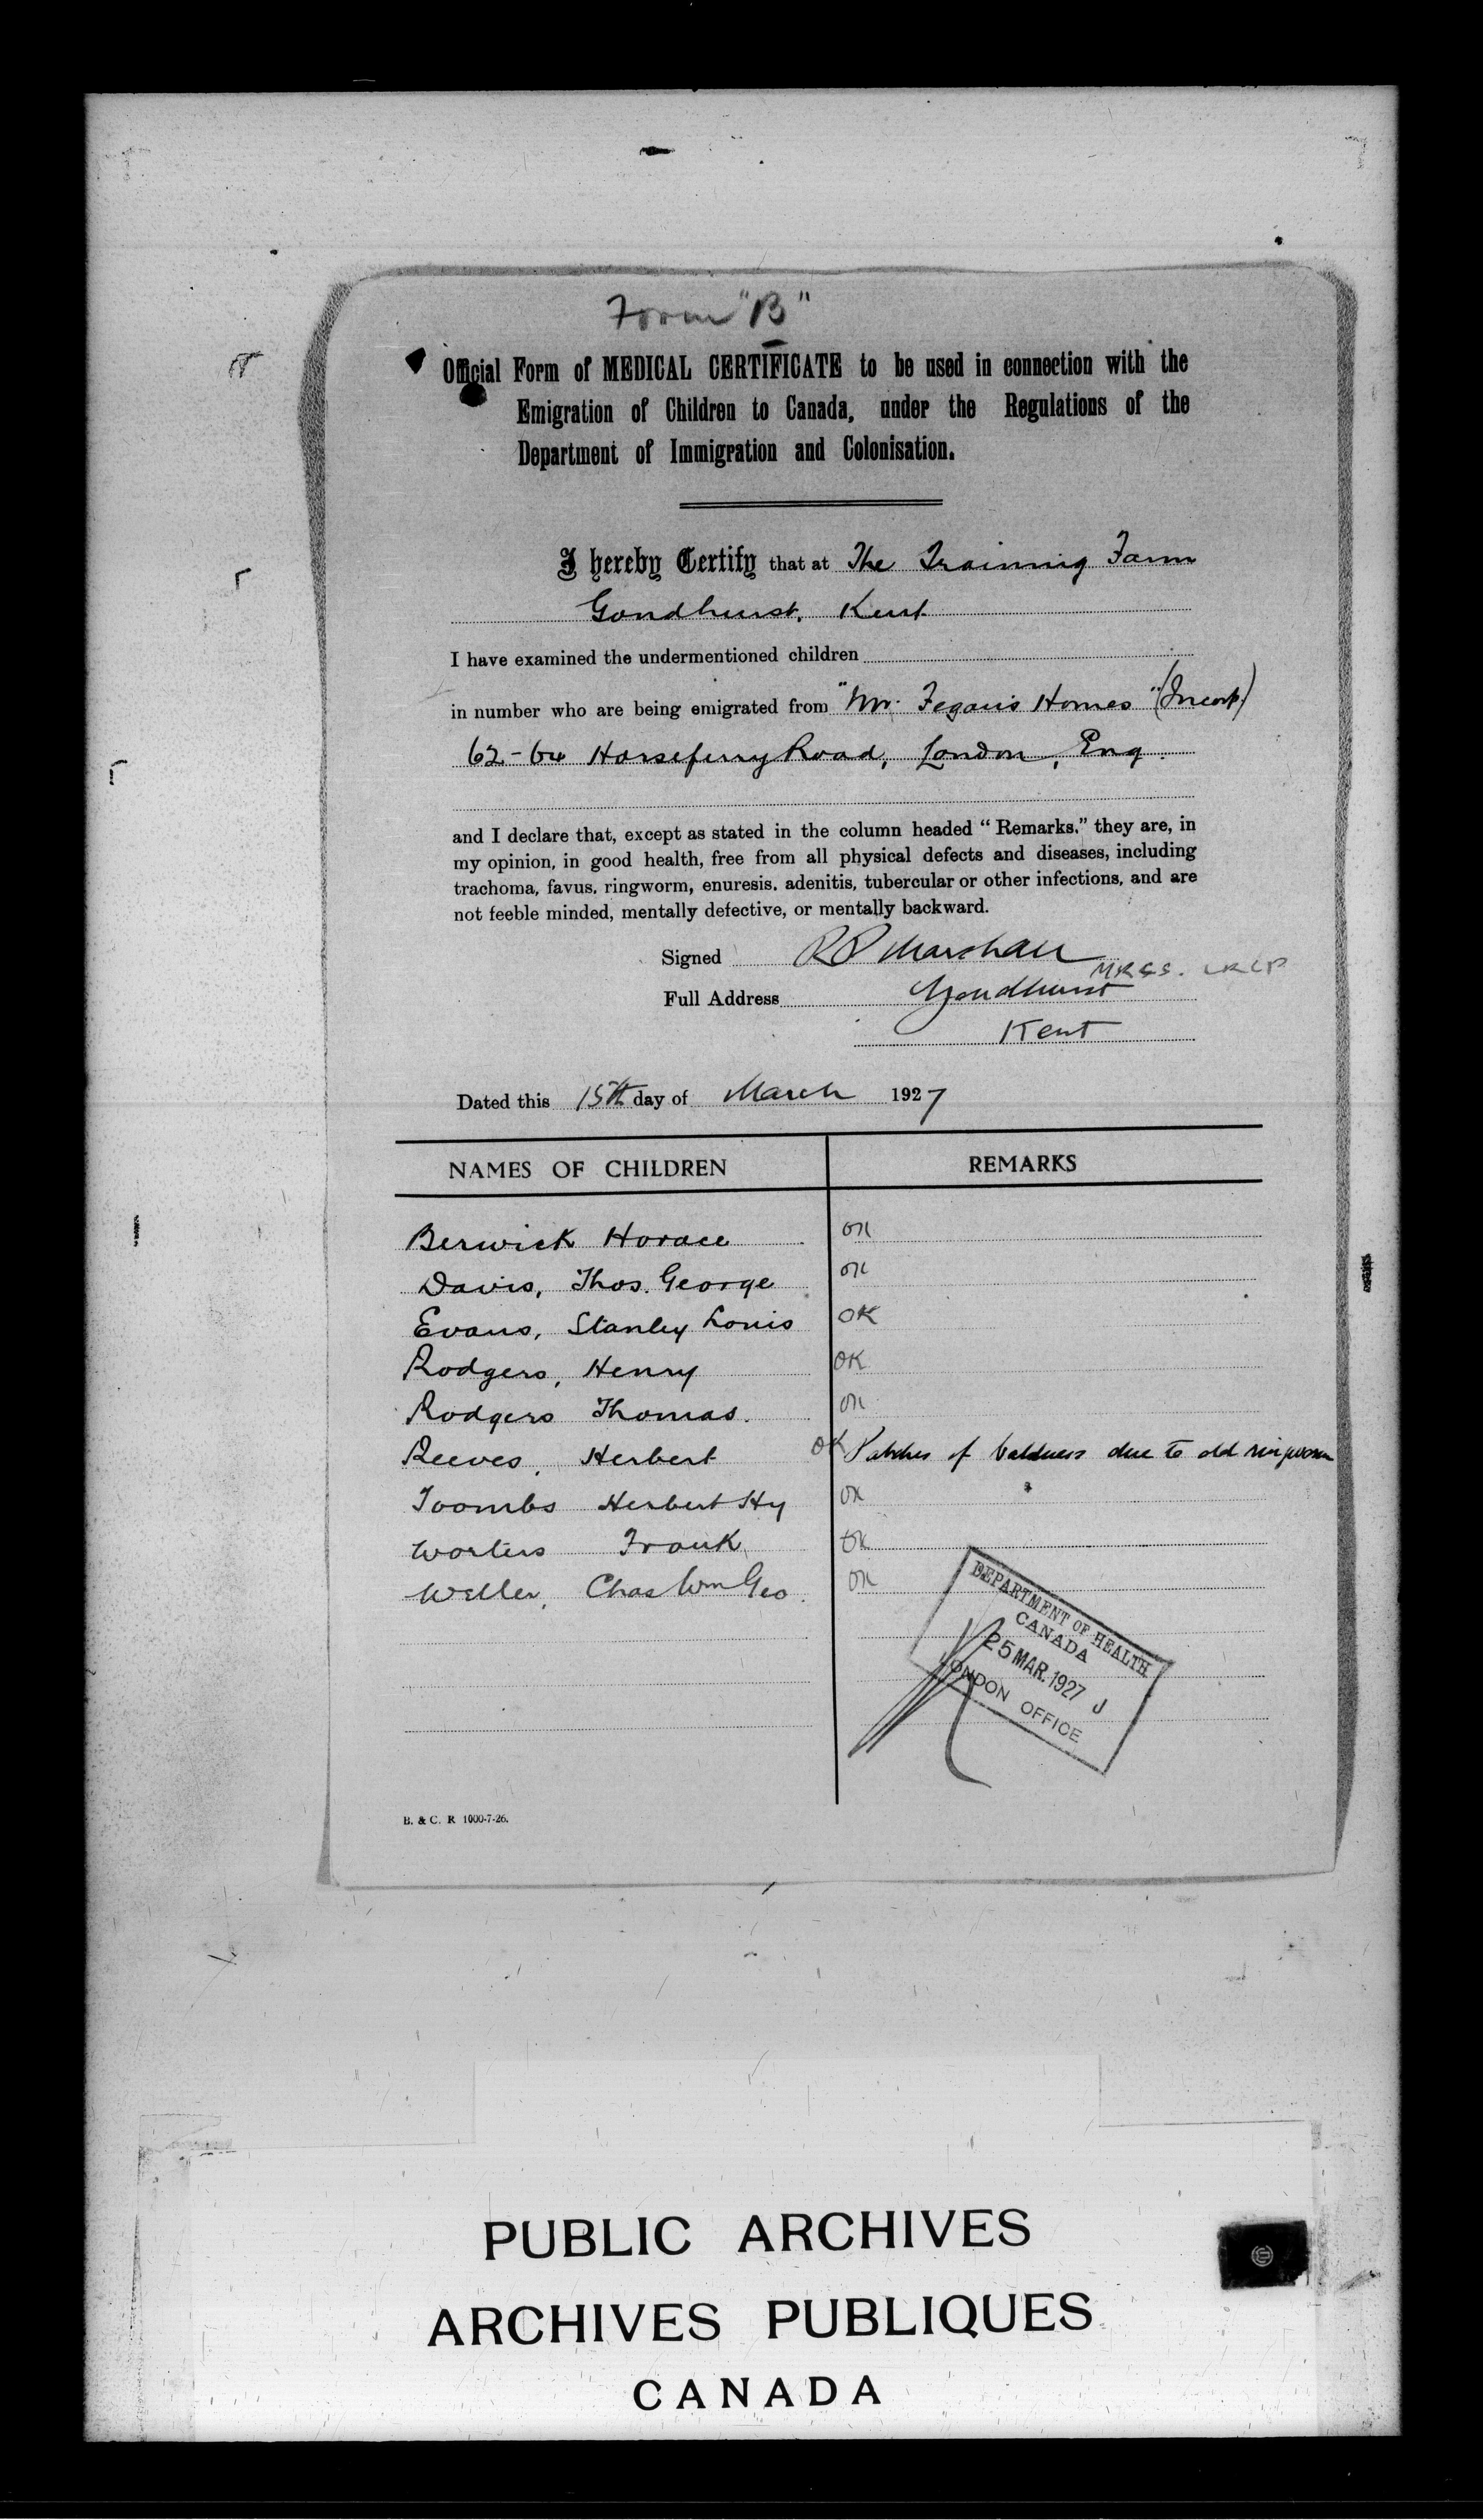 Form "B"
Official Form of MEDICAL CERTIFICATE to be used in connection with the
Emigration of Children to Canada, under the Regulations of the
Department of Immigration and Colonisation.
I hereby Certify that at The Training Farm
Goudhurst, Kent
I have examined the undermentioned children
in number who are being emigrated from "Mr. Fegan's Homes" (Incorp.)
62-64 Horseferry Road, London, Eng.
and I declare that, except as stated in the column headed "Remarks." they are, in
my opinion, in good health, free from all physical defects and diseases, including
trachoma, favus, ringworm, enuresis, adenitis, tubercular or other infections, and are
not feeble minded, mentally defective, or mentally backward.
Signed R P Marshall
MRCS. LRCP
Full Address Goudhurst
Kent
Dated this 15th day of March 1927
NAMES OF CHILDREN REMARKS
Berwick Horace OK
Davis, Thos. George OK
Evans, Stanley Louis OK
Rodgers, Henry OK
Rodgers Thomas. OK
Reeves, Herbert OK Patches of baldness due to old ringworm
Toombs Herbert Hy OK
Worters Frank OK
Weller, Chas Wm Geo. OK
DEPARTMENT OF HEALTH
CANADA
25 MAR. 1927 J
LONDON OFFICE
B. & C. R 1000-7-26.
PUBLIC ARCHIVES
ARCHIVES PUBLIQUES
CANADA